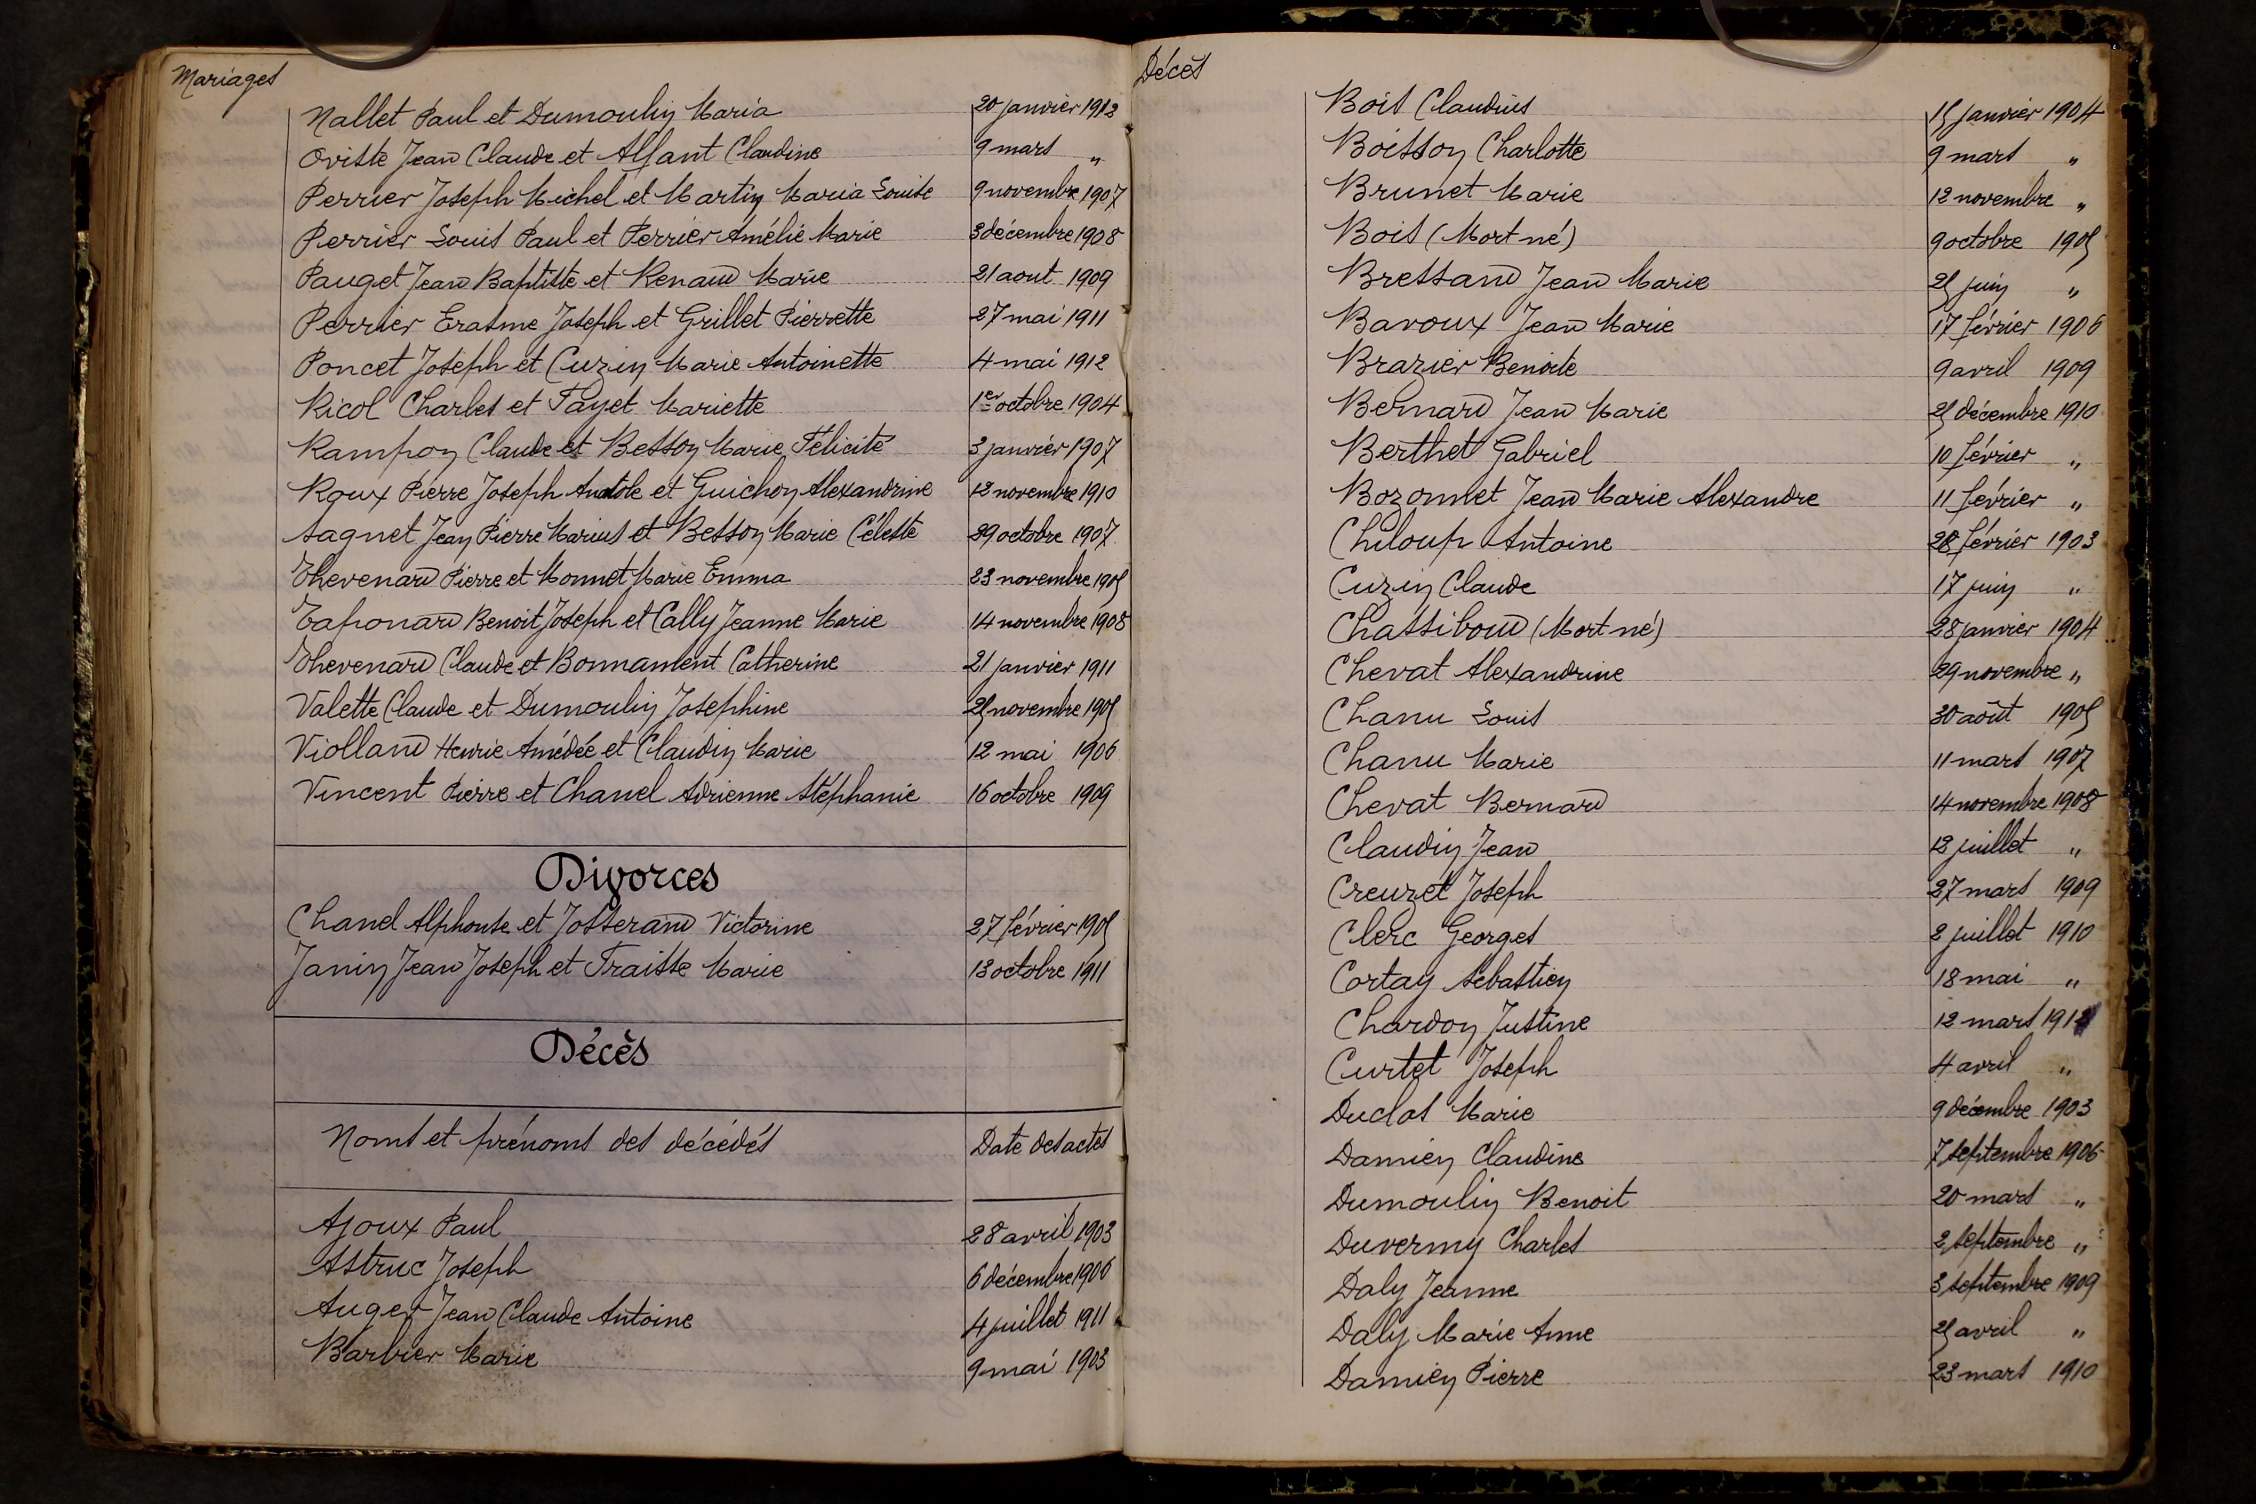 Mariages
Nallet Paul et Dumoulin Maria 20 janvier 1912
Oviste Jean Claude et Alfant Claudine 9 mars "
Perrier Joseph Michel et Martin Maria Louise 9 novembre 1907
Perrier Louis Paul et Perrier Amélie Marie 3 décembre 1908
Pauget Jean Baptiste et Renaud Marie 21 aout 1909
Perrier Erasme Joseph et Grillet Pierrette 27 mai 1911
Poncet Joseph et Cuzin Marie Antoinette 4 mai 1912
Ricol Charles et Fayet Mariette 1er octobre 1904
Rampon Claude et Besson Marie Félicité 3 janvier 1907
Roux Pierre Joseph Anatole et Guichon Alexandrine 12 novembre 1910
Sagnet Jean Pierre Marius et Besson Marie Céleste 29 octobre 1907
Thevenard Pierre et Monnet Marie Emma 23 novembre 1905
Taponard Benoit Joseph et Cally Jeanne Marie 14 novembre 1908
Thevenard Claude et Bonnament Catherine 21 janvier 1911
Valette Claude et Dumoulin Josephine 25 novembre 1905
Violland Henrie Amédée et Claudin Marie 12 mai 1906
Vincent Pierre et Chanel Adrienne Stéphanie 16 octobre 1909
Divorces
Chanel Alphonse et Josserand Victorine 27 février 1905
Janin Jean Joseph et Fraisse Marie 13 octobre 1911
Décès
Noms et prénoms des décédés Date des actes
Ajoux Paul 28 avril 1903
Astruc Joseph 6 décembre 1906
Auger Jean Claude Antoine 4 juillet 1911
Barbier Marie 9 mai 1903
Décès
Bois Claudius 15 janvier 1904
Boisson Charlotte 9 mars "
Brunet Marie 12 novembre "
Bois (Mort né) 9 octobre 1905
Bressand Jean Marie 25 juin "
Bavoux Jean Marie 17 février 1906
Brazier Benoite 9 avril 1909
Bernard Jean Marie 25 décembre 1910
Berthet Gabriel 10 février "
Bozonnet Jean Marie Alexandre 11 février "
Chiloup Antoine 28 février 1903
Cuzin Claude 17 juin "
Chassiboud (Mort né) 28 janvier 1904
Chevat Alexandrine 29 novembre "
Chanu Louis 30 août 1905
Chanu Marie 11 mars 1907
Chevat Bernard 14 novembre 1908
Claudin Jean 12 juillet "
Creuzet Joseph 27 mars 1909
Clerc Georges 2 juillet 1910
Cortay Sébastien 18 mai "
Chardon Justine 12 mars 1912
Curtet Joseph 4 avril "
Duclos Marie 9 décembre 1903
Damien Claudine 7 septembre 1906
Dumoulin Benoit 20 mars "
Duvermy Charles 2 septembre "
Daly Jeanne 3 septembre 1909
Daly Marie Anne 25 avril "
Damien Pierre 23 mars 1910